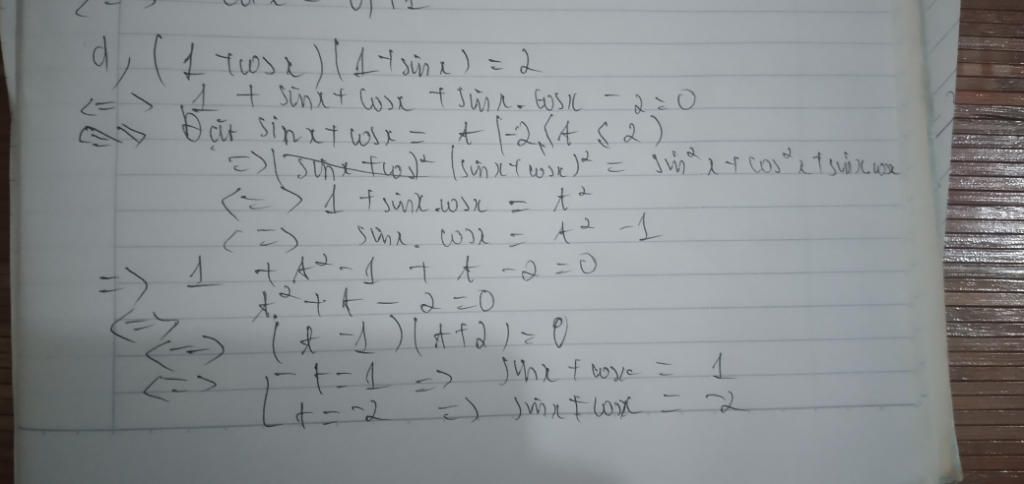 d, (1 + cosx)(1 + sinx) = 2
<=> 1 + sinx + cosx + sinx.cosx - 2 = 0
<=> Đặt sinx + cosx = t (-2 ≤ t ≤ 2)
=> (sinx + cos)² (sinx + cosx)² = sin²x + cos²x + sinxcosx
<=> 1 + sinx.cosx = t²
<=> sinx.cosx = t² - 1
=> 1 + t² - 1 + t - 2 = 0
<=> t² + t - 2 = 0
<=> (t - 1)(t + 2) = 0
<=> [ t = 1 => sinx + cosx = 1
t = -2 => sinx + cosx = -2